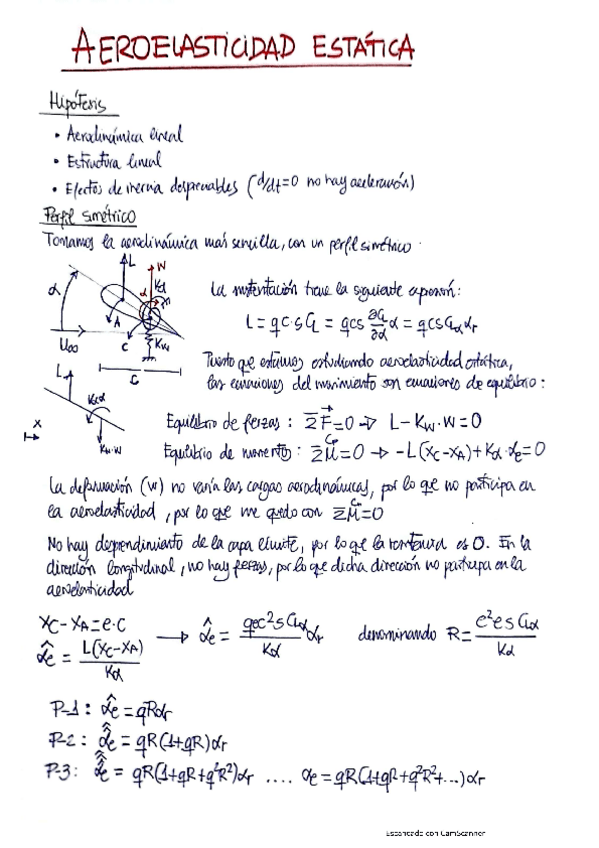 AEROELASTICIDAD ESTÁTICA
Hipótesis
• Aerodinámica lineal
• Estructura lineal
• Efectos de inercia despreciables (d/dt=0 no hay aceleración)
Perfil simétrico
Tomamos la aerodinámica más sencilla, con un perfil simétrico.
L W
α Kα
α M
A
U∞ C Kw
c
La sustentación tiene la siguiente expresión:
L = qc·sCL = qcs ∂CL/∂α α = qcsCLα αr
Puesto que estamos estudiando aeroelasticidad estática,
las ecuaciones del movimiento son ecuaciones de equilibrio:
L Kα·α
x Kw·w
Equilibrio de fuerzas: ΣF⃗=0 → L-Kw·W=0
Equilibrio de momentos: ΣM^CP=0 → -L(xC-xA)+Kα·αe=0
La deformación (w) no varía las cargas aerodinámicas, por lo que no participa en
la aeroelasticidad, por lo que me quedo con ΣM^CP=0
No hay desprendimiento de la capa límite, por lo que la
es 0. En la
dirección longitudinal, no hay fuerzas, por lo que dicha dirección no participa en la
aeroelasticidad
xC-xA=e·c
α̂e = L(xC-xA)/Kα → α̂e = qec²sCLα/Kα αr denominando R= c²esCLα/Kα
P-1: α̂e = qRαr
P-2: α̂̂e = qR(1+qR)αr
P-3: α̂̂̂e = qR(1+qR+q²R²)αr .... αe = qR(1+qR+q²R²+...)αr
Escaneado con CamScanner